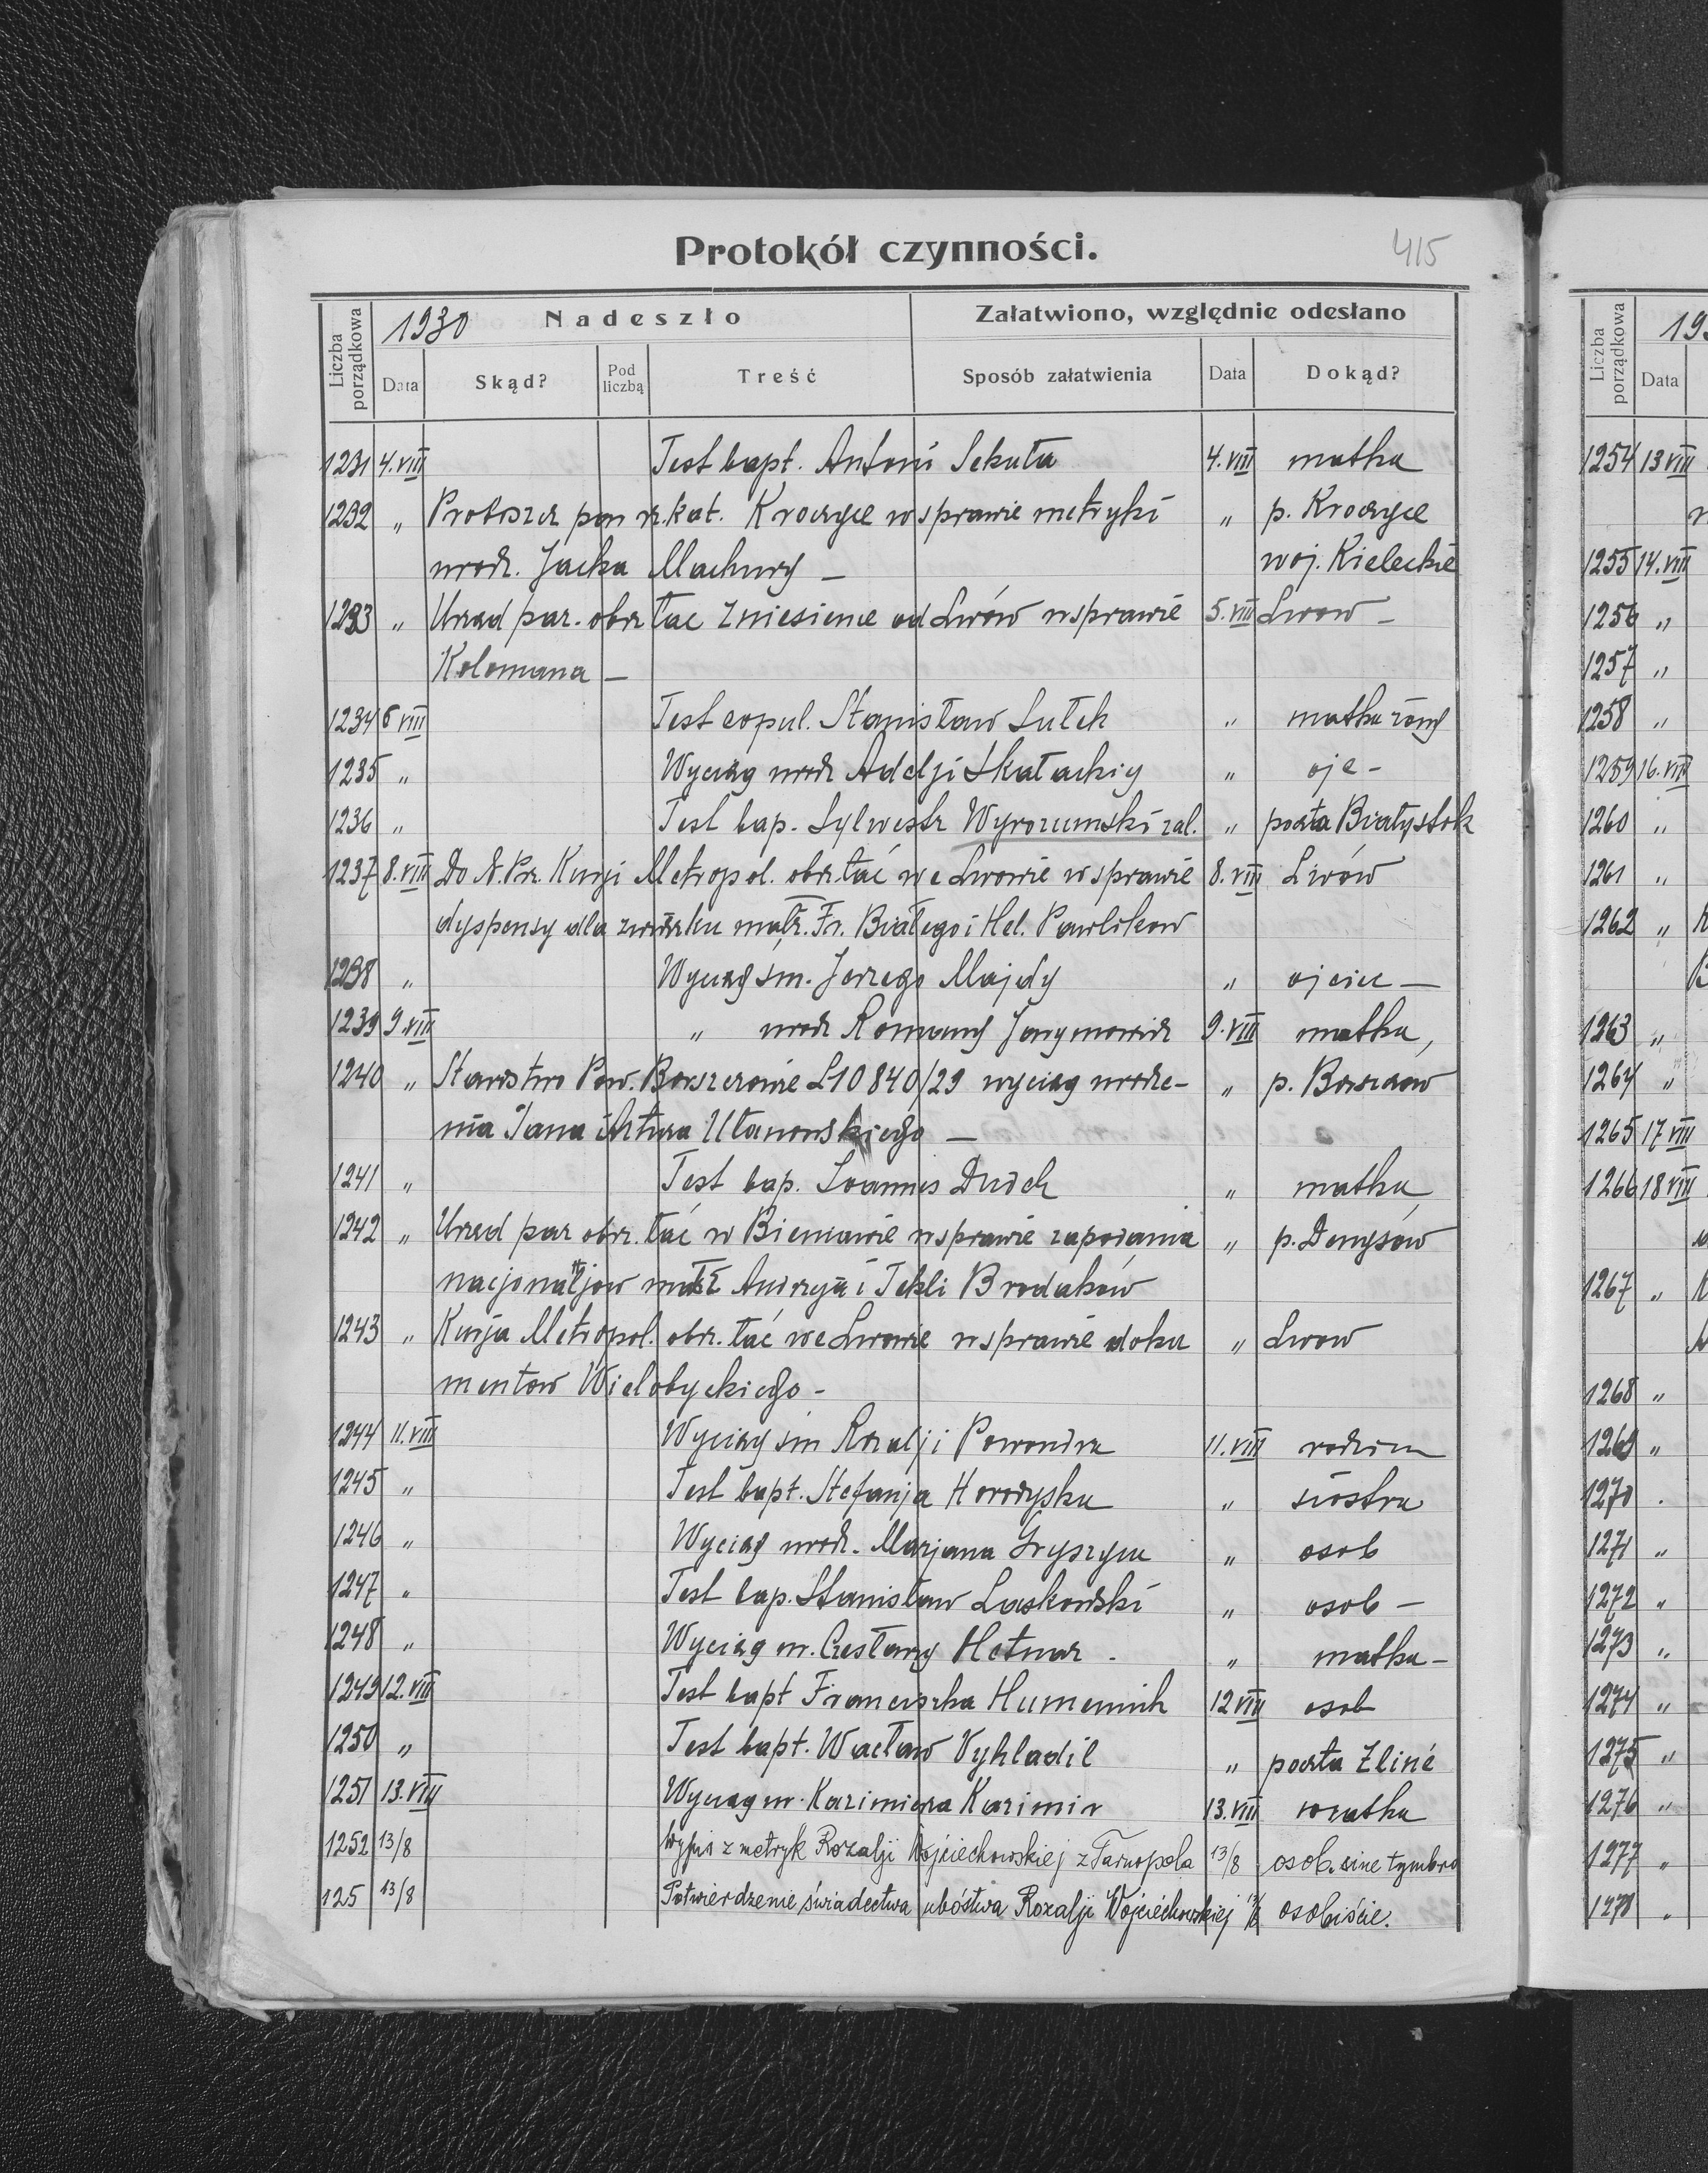 Protokół czynności.
415
Liczba porządkowa
1930 Nadeszło
Załatwiono, względnie odesłano
Data Skąd? Pod liczbą Treść Sposób załatwienia Data Dokąd?
1231 4.VIII Test bapt. Antoni Sekuła 4.VIII matka
1232 „ Proboszcz par rz.kat. Kroczyce w sprawie metryki „ p. Kroczyce
urodz. Jacka Machury — woj. Kieleckie
1233 „ Urząd par. obrz łac Zniesienie ad Lwów w sprawie 5.VIII Lwow -
Kolomana —
1234 6 VIII Test copul. Stanisław Lułek „ matka żony
1235 „ Wyciąg urodz Adelji Skałackiy „ ojc-
1236 „ Test bap. Sylwestr Wyrozumski zał. „ poczta Białystok
1237 8.VIII Do N. Prz. Kurji Metropol. obrz.łać we Lwowie w sprawie 8.VIII Lwów
dyspensy dla związku małż. Fr. Białego i Hel. Pawlikow
1238 „ Wyciąg śm. Jerzego Majdy „ ojciec —
1239 9.VIII „ urodz Romany Janymowicz 9.VIII matka,
1240 „ Starostwo Pow. Borszczowie L10840/29 wyciąg urodze- „ p. Borszczow
nia Jana i Artura Ułanowskiego —
1241 „ Test bap. Ioannes Dudek „ matka
1242 „ Urząd par obrz. łać w Bieniawie w sprawie zapodania „ p. Denysów
nacjonaljow małż Andrzyja i Tekli Brodaków
1243 „ Kurja Metropol. obrz. łać we Lwowie w sprawie doku „ Lwow
mentow Wielobyckiego -
1244 11.VIII Wyciąg śm Rozalji Powondra 11.VIII rodzina
1245 „ Test bapt. Stefanja Horodyska „ siostra
1246 „ Wyciąg urodz. Marjana Gryszyna „ osob
1247 „ Test bap. Stanisław Laskowski „ osob —
1248 „ Wyciąg ur. Czesławy Hetnar . „ matka -
1249 12.VIII Test bapt Franciszka Humennik 12 VIII osob
1250 „ Test bapt. Wacław Vykladil „ poczta Zliné
1251 13.VIII Wyciąg ur. Kazimiera Kazimir 13.VIII matka
1252 13/8 Wypis z metryk Rozalji Wojciechowskiej z Tarnopola 13/8 osob. sine tymbro
125 13/8 Potwierdzenie świadectwa ubóstwa Rozalji Wojciechowskiej 13/8 osobiście.
Liczba porządkowa
193
Data
1254 13 VIII
1255 14.VIII
1256 „
1257 „
1258 „
1259 16.VIII
1260 „
1261 „
1262 „
1263 „
1264 „
1265 17 VIII
1266 18 VIII
1267 „
1268 „
1269 „
1270 .
1271 „
1272 „
1273 „
1274 „
1275 „
1276 „
1277 „
1278 „